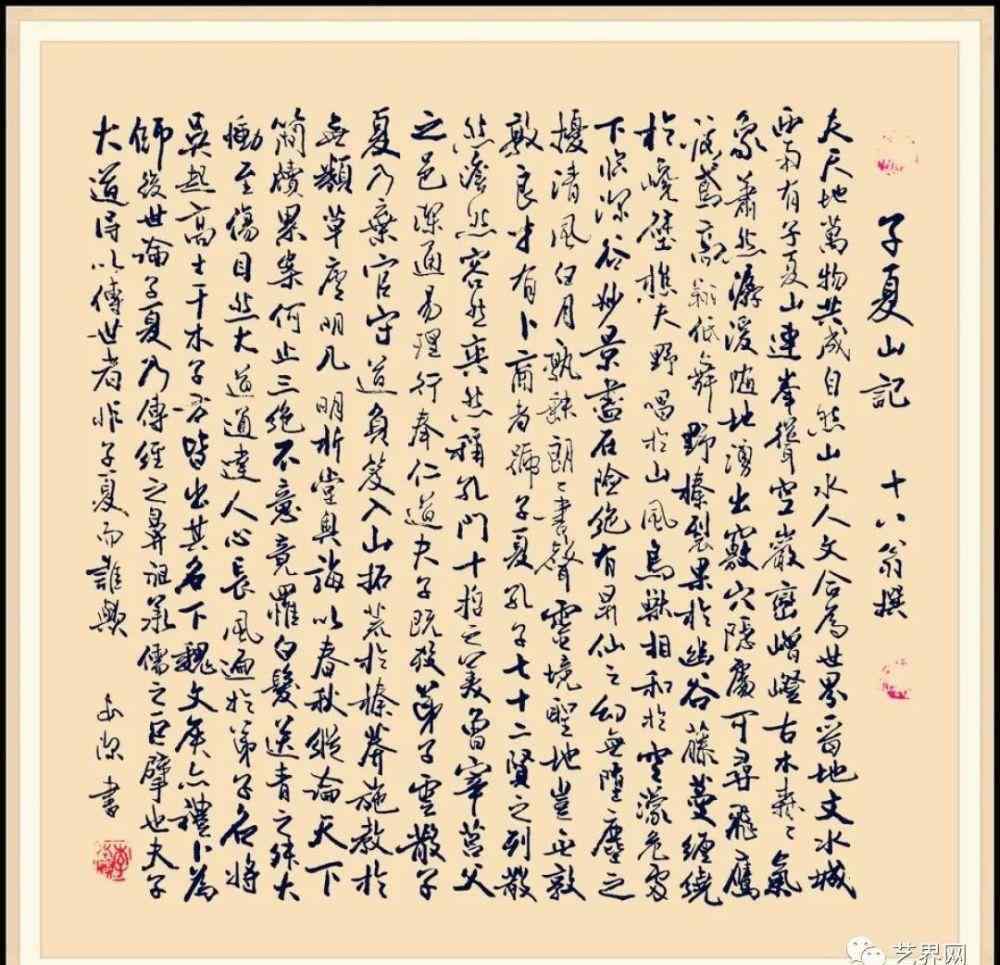 子夏山記 十八翁撰
夫天地萬物共成自然山水人文合為世界晉地文水城
西南有子夏山連峯聳空巖巒嶒嶝古木森々氣
象蕭然潺湲隨地湧出竅穴隱處可尋飛鷹
鳶高翔低舞野榛裂果於幽谷藤蔓纏繞
於嶢壁樵夫野唱於山風鳥獸相和於空濛危處
下臨深谷妙景盡在險絕有昇仙之幻無墮塵之
擾清風白月孰聽朗々書聲靈境聖地豈無敦
敦良才有卜商者號子夏孔子七十二賢之列敬
然澹然容然奕然稱孔門十哲之美曾宰莒父
之邑深通易理行奉仁道夫子既歿弟子雲散子
夏乃棄官守道負笈入山拓荒於榛莽施教於
無類草廬明几明析堂奧誨以春秋縱論天下
簡牘累案何止三絕不意竟罹白髮送青之殊大
慟至傷目然大道通達人心長風遍於弟子名將
吳起高士干木子方皆出其名下魏文侯亦禮卜為
師後世論子夏乃傳經之鼻祖承儒之巨擘也夫子
大道得以傳世者非子夏而誰歟
書
艺界网